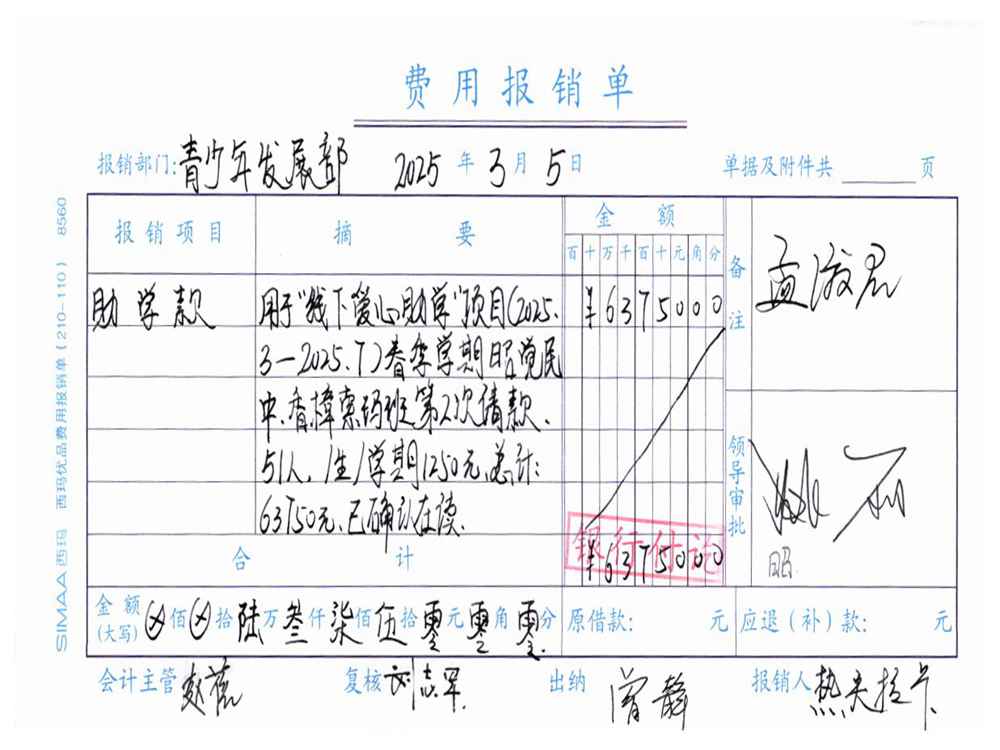 费用报销单
报销部门:青少年发展部 2025年3月5日 单据及附件共 页
报销项目 摘要 金额 备注
百十万千百十元角分
助学款 用于"线下爱心助学"项目(2025. ¥6375000
3—2025.7)春季学期昭觉民
中.香樟索玛班第2次请款.
51人,/生/学期1250元,总计:
63750元,已确认在读.
领导审批
银行付讫
合计 ¥6375000
昭
金额(大写)⊗佰⊗拾陆万叁仟柒佰伍拾零元零角零分 原借款: 元 应退(补)款: 元
会计主管 赵 复核 刘志军 出纳 曾静 报销人 热夫拉卡
SIMAA西玛 西玛优品费用报销单(210-110) 8560